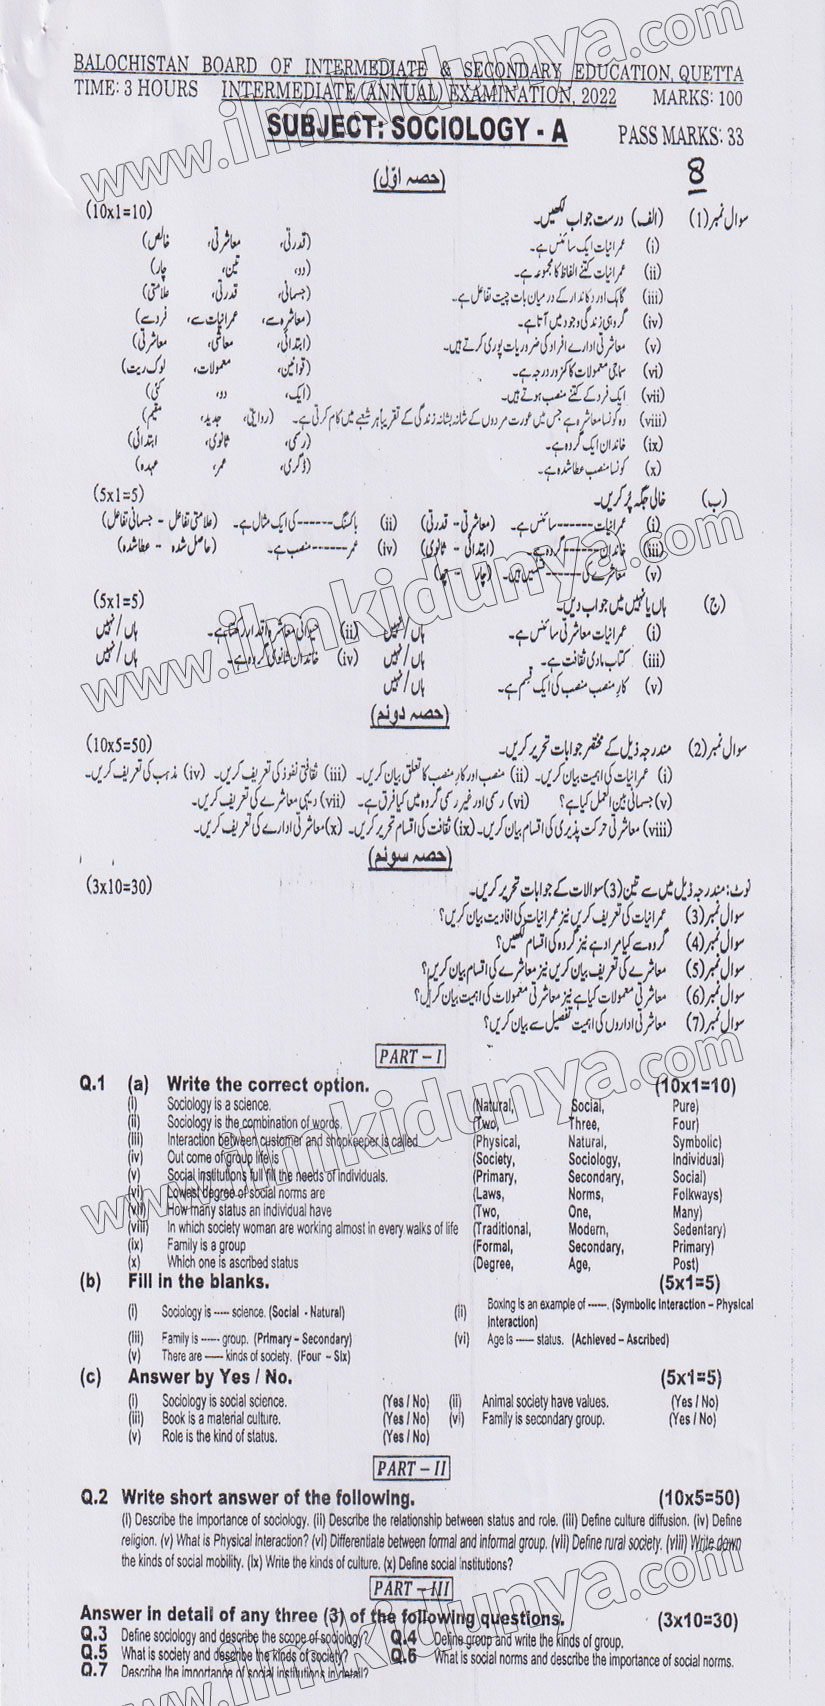 BALOCHISTAN BOARD OF INTERMEDIATE & SECONDARY EDUCATION, QUETTA
TIME: 3 HOURS INTERMEDIATE (ANNUAL) EXAMINATION, 2022 MARKS: 100
SUBJECT: SOCIOLOGY - A PASS MARKS: 33
8
(حصہ اوّل)
سوال نمبر (1) (الف) درست جواب لکھیں۔ (10x1=10)
(i) عمرانیات ایک سائنس ہے۔ (قدرتی، معاشرتی، خالص)
(ii) عمرانیات کتنے الفاظ کا مجموعہ ہے۔ (دو، تین، چار)
(iii) گاہک اور دکاندار کے درمیان بات چیت تفاعل ہے۔ (جسمانی، قدرتی، علامتی)
(iv) گروہی زندگی وجود میں آتا ہے۔ (معاشرہ سے، عمرانیات سے، فرد سے)
(v) معاشرتی ادارے افراد کی ضروریات پوری کرتے ہیں۔ (ابتدائی، معاشی، معاشرتی)
(vi) سماجی معمولات کا کمزور درجہ ہے۔ (قوانین، معمولات، لوک ریت)
(vii) ایک فرد کے کتنے منصب ہوتے ہیں۔ (ایک، دو، کئی)
(viii) وہ کونسا معاشرہ ہے جس میں عورت مردوں کے شانہ بشانہ زندگی کے تقریباً ہر شعبے میں کام کرتی ہے۔ (روایتی، جدید، مقیم)
(ix) خاندان ایک گروہ ہے۔ (رسمی، ثانوی، ابتدائی)
(x) کونسا منصب عطا شدہ ہے۔ (ڈگری، عمر، عہدہ)
(ب) خالی جگہ پُر کریں۔ (5x1=5)
(i) عمرانیات ------ سائنس ہے۔ (معاشرتی - قدرتی) (ii) باکسنگ ------ کی ایک مثال ہے۔ (علامتی تفاعل - جسمانی تفاعل)
(iii) خاندان ------ گروہ ہے۔ (ابتدائی - ثانوی) (iv) عمر ------ منصب ہے۔ (حاصل شدہ - عطا شدہ)
(v) معاشرے کی ------ قسمیں ہیں۔ (چار - چھ)
(ج) ہاں یا نہیں میں جواب دیں۔ (5x1=5)
(i) عمرانیات معاشرتی سائنس ہے۔ ہاں/نہیں (ii) حیوانی معاشرہ اقدار رکھتا ہے۔ ہاں/نہیں
(iii) کتاب مادی ثقافت ہے۔ ہاں/نہیں (iv) خاندان ثانوی گروہ ہے۔ ہاں/نہیں
(v) کار منصب منصب کی ایک قسم ہے۔ ہاں/نہیں
(حصہ دوئم)
سوال نمبر (2) مندرجہ ذیل کے مختصر جوابات تحریر کریں۔ (10x5=50)
(i) عمرانیات کی اہمیت بیان کریں۔ (ii) منصب اور کار منصب کا تعلق بیان کریں۔ (iii) ثقافتی نفوذ کی تعریف کریں۔ (iv) مذہب کی تعریف کریں۔
(v) جسمانی بین العمل کیا ہے؟ (vi) رسمی اور غیر رسمی گروہ میں کیا فرق ہے۔ (vii) دیہی معاشرے کی تعریف کریں۔
(viii) معاشرتی حرکت پذیری کی اقسام بیان کریں۔ (ix) ثقافت کی اقسام تحریر کریں۔ (x) معاشرتی ادارے کی تعریف کریں۔
(حصہ سوئم)
نوٹ: مندرجہ ذیل میں سے تین (3) سوالات کے جوابات تحریر کریں۔ (3x10=30)
سوال نمبر (3) عمرانیات کی تعریف کریں نیز عمرانیات کی افادیت بیان کریں؟
سوال نمبر (4) گروہ سے کیا مراد ہے نیز گروہ کی اقسام لکھیں؟
سوال نمبر (5) معاشرے کی تعریف بیان کریں نیز معاشرے کی اقسام بیان کریں؟
سوال نمبر (6) معاشرتی معمولات کیا ہے نیز معاشرتی معمولات کی اہمیت بیان کریں؟
سوال نمبر (7) معاشرتی اداروں کی اہمیت تفصیل سے بیان کریں؟
PART – I
Q.1 (a) Write the correct option. (10x1=10)
(i) Sociology is a science. (Natural, Social, Pure)
(ii) Sociology is the combination of words. (Two, Three, Four)
(iii) Interaction between customer and shopkeeper is called (Physical, Natural, Symbolic)
(iv) Out come of group life is (Society, Sociology, Individual)
(v) Social institutions full fill the needs of individuals. (Primary, Secondary, Social)
(vi) Lowest degree of social norms are (Laws, Norms, Folkways)
(vii) How many status an individual have (Two, One, Many)
(viii) In which society woman are working almost in every walks of life (Traditional, Modern, Sedentary)
(ix) Family is a group (Formal, Secondary, Primary)
(x) Which one is ascribed status (Degree, Age, Post)
(b) Fill in the blanks. (5x1=5)
(i) Sociology is ----- science. (Social - Natural) (ii) Boxing is an example of -----. (Symbolic Interaction – Physical
Interaction)
(iii) Family is ----- group. (Primary – Secondary) (vi) Age is ----- status. (Achieved – Ascribed)
(v) There are ----- kinds of society. (Four – Six)
(c) Answer by Yes / No. (5x1=5)
(i) Sociology is social science. (Yes / No) (ii) Animal society have values. (Yes / No)
(iii) Book is a material culture. (Yes / No) (vi) Family is secondary group. (Yes / No)
(v) Role is the kind of status. (Yes / No)
PART – II
Q.2 Write short answer of the following. (10x5=50)
(i) Describe the importance of sociology. (ii) Describe the relationship between status and role. (iii) Define culture diffusion. (iv) Define
religion. (v) What is Physical Interaction? (vi) Differentiate between formal and informal group. (vii) Define rural society. (viii) Write down
the kinds of social mobility. (ix) Write the kinds of culture. (x) Define social institutions?
PART – III
Answer in detail of any three (3) of the following questions. (3x10=30)
Q.3 Define sociology and describe the scope of sociology? Q.4 Define group and write the kinds of group.
Q.5 What is society and describe the kinds of society? Q.6 What is social norms and describe the importance of social norms.
Q.7 Describe the importance of social institutions in detail?
www.ilmkidunya.com
www.ilmkidunya.com
www.ilmkidunya.com
www.ilmkidunya.com